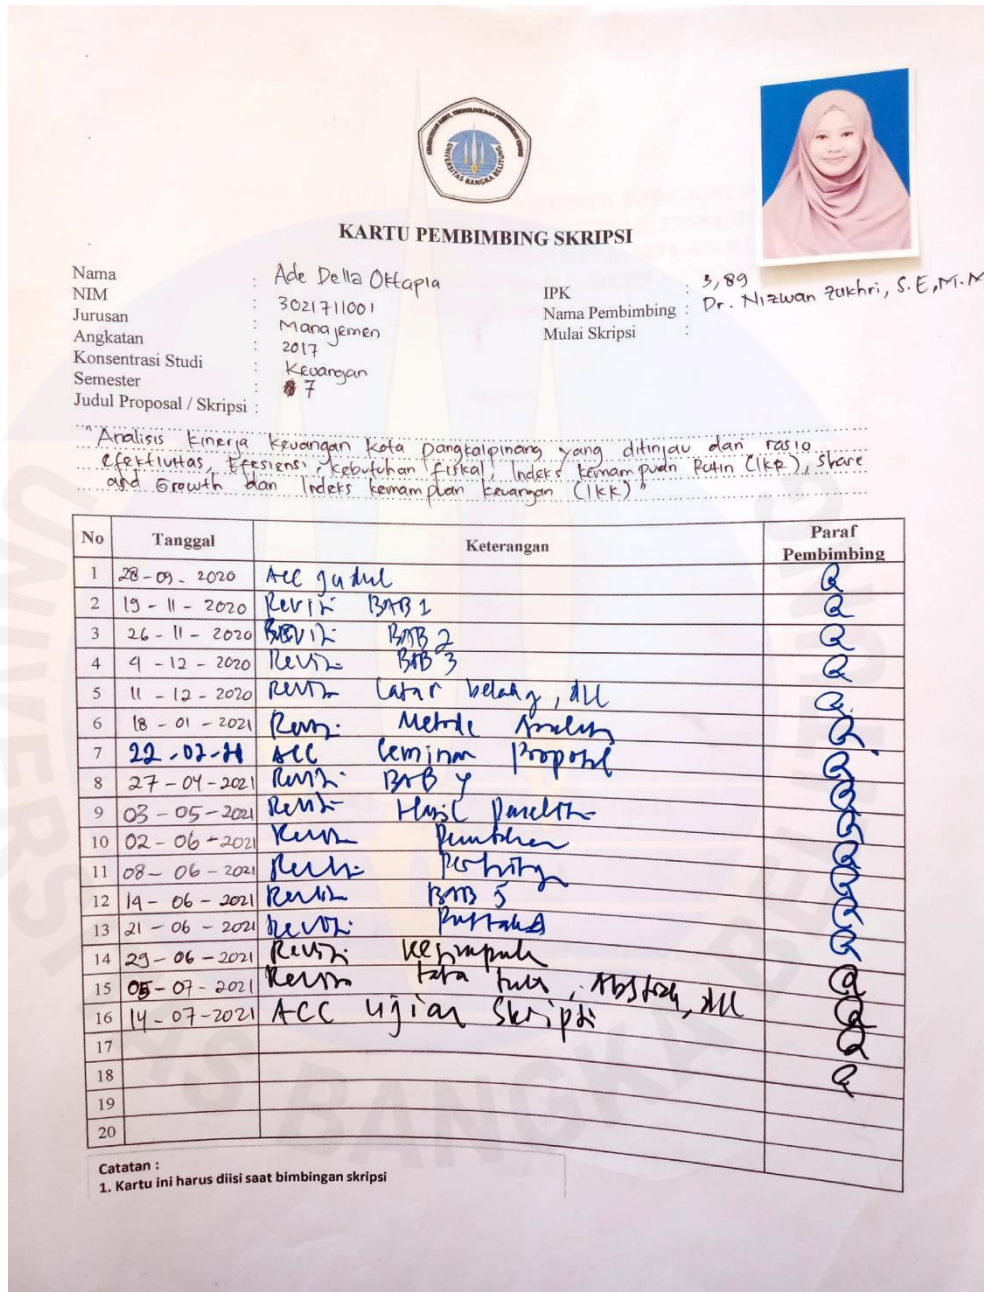 KEMENTERIAN RISET, TEKNOLOGI DAN PENDIDIKAN TINGGI
UNIVERSITAS BANGKA BELITUNG
KARTU PEMBIMBING SKRIPSI
Nama : Ade Della Oktapia
NIM : 3021711001
Jurusan : Manajemen
Angkatan : 2017
Konsentrasi Studi : Keuangan
Semester : 7
Judul Proposal / Skripsi :
IPK : 3,89
Nama Pembimbing : Dr. Nizwan Zukhri, S.E, M.M
Mulai Skripsi :
"Analisis kinerja keuangan kota pangkalpinang yang ditinjau dari rasio
efektivitas, Efesiensi, kebutuhan fiskal, Indeks kemampuan Rutin (IKR), share
and Growth dan Indeks kemampuan keuangan (IKK)"
No Tanggal Keterangan Paraf Pembimbing
1 28-09-2020 Acc judul
2 19-11-2020 Revisi BAB 1
3 26-11-2020 Revisi BAB 2
4 4-12-2020 Revisi BAB 3
5 11-12-2020 Revisi Latar belakang, dll
6 18-01-2021 Revisi Metode Analisis
7 22-02-21 ACC Seminar Proposal
8 27-04-2021 Revisi BAB 4
9 03-05-2021 Revisi Hasil Penelitian
10 02-06-2021 Revisi
11 08-06-2021 Revisi
12 14-06-2021 Revisi BAB 5
13 21-06-2021 Revisi Pustaka
14 29-06-2021 Revisi kesimpulan
15 05-07-2021 Revisi tata tulis, Abstrak, dll
16 14-07-2021 ACC Ujian Skripsi
17
18
19
20
Catatan :
1. Kartu ini harus diisi saat bimbingan skripsi
UNIVERSITAS BANGKA BELITUNG